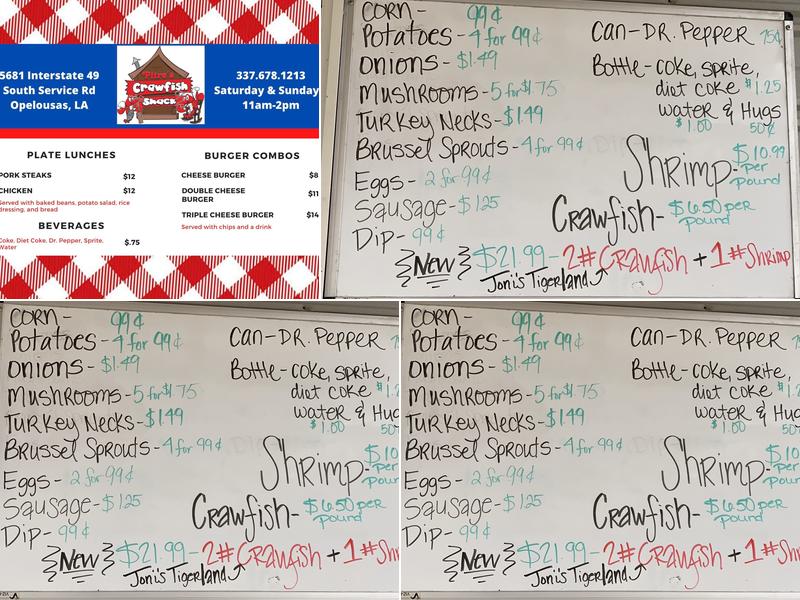 5681 Interstate 49
South Service Rd
Opelousas, LA
Crawfish
Shack
337.678.1213
Saturday & Sunday
11am-2pm
PLATE LUNCHES
PORK STEAKS $12
CHICKEN $12
Served with baked beans, potato salad, rice
dressing, and bread
BEVERAGES
Coke, Diet Coke, Dr. Pepper, Sprite,
Water $.75
BURGER COMBOS
CHEESE BURGER $8
DOUBLE CHEESE
BURGER $11
TRIPLE CHEESE BURGER $14
Served with chips and a drink
CORN - 99¢
Potatoes - 4 for 99¢
Onions - $1.49
Mushrooms - 5 for $1.75
Turkey Necks - $1.49
Brussel Sprouts - 4 for 99¢
Eggs - 2 for 99¢
Sausage - $1.25
Dip - 99¢
Can - DR. PEPPER 75¢
Bottle - coke, sprite,
diet coke $1.25
water & Hugs
$1.00 50¢
Shrimp - $10.99
per
pound
Crawfish - $6.50 per
pound
NEW $21.99 - 2# Crawfish + 1# Shrimp
Joni's Tigerland
CORN - 99¢
Potatoes - 4 for 99¢
Onions - $1.49
Mushrooms - 5 for $1.75
Turkey Necks - $1.49
Brussel Sprouts - 4 for 99¢
Eggs - 2 for 99¢
Sausage - $1.25
Dip - 99¢
Can - DR. PEPPER
Bottle - coke, sprite,
diet coke $1.2
water & Hug
$1.00 50
Shrimp - $10
per
pound
Crawfish - $6.50 per
pound
NEW $21.99 - 2# Crawfish + 1# Shr
Joni's Tigerland
CORN - 99¢
Potatoes - 4 for 99¢
Onions - $1.49
Mushrooms - 5 for $1.75
Turkey Necks - $1.49
Brussel Sprouts - 4 for 99¢
Eggs - 2 for 99¢
Sausage - $1.25
Dip - 99¢
Can - DR. PEPPER
Bottle - coke, sprite,
diet coke $1.2
water & Hug
$1.00 50
Shrimp - $10
per
pound
Crawfish - $6.50 per
pound
NEW $21.99 - 2# Crawfish + 1# Shr
Joni's Tigerland